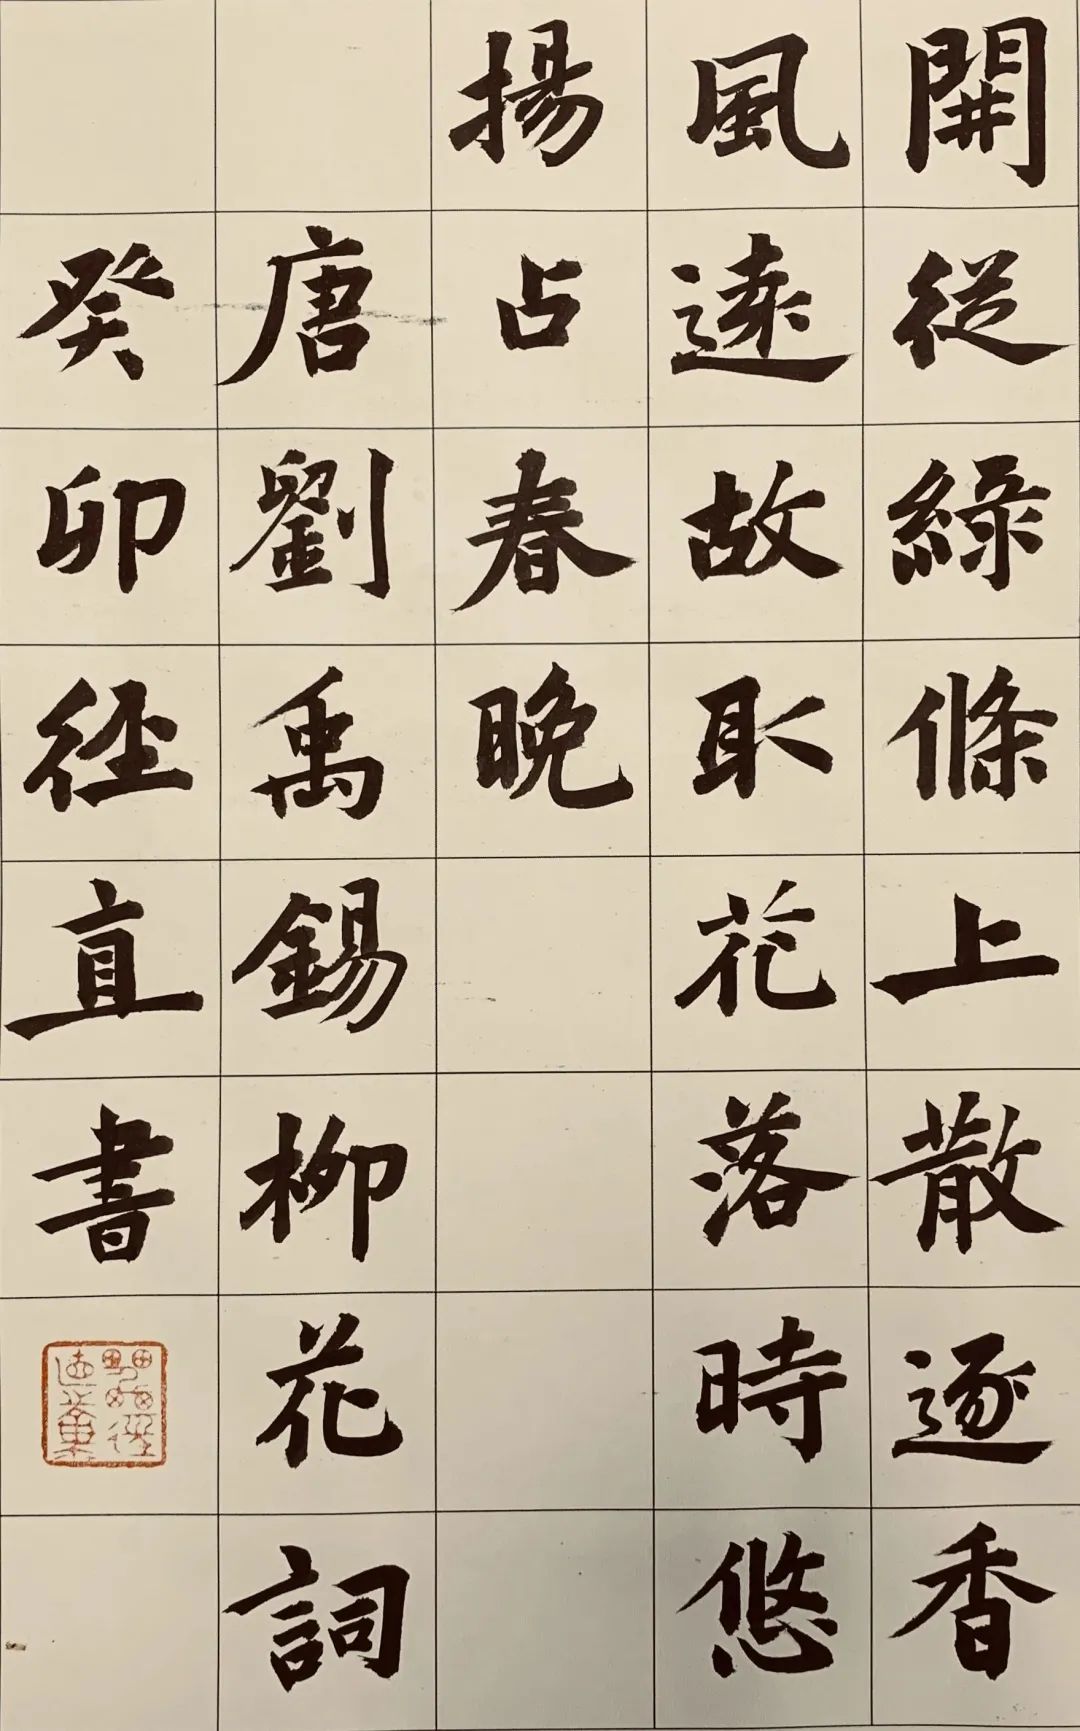 開從綠條上散逐香
風遠故取花落時悠
揚占春晚
唐劉禹錫柳花詞
癸卯径直書